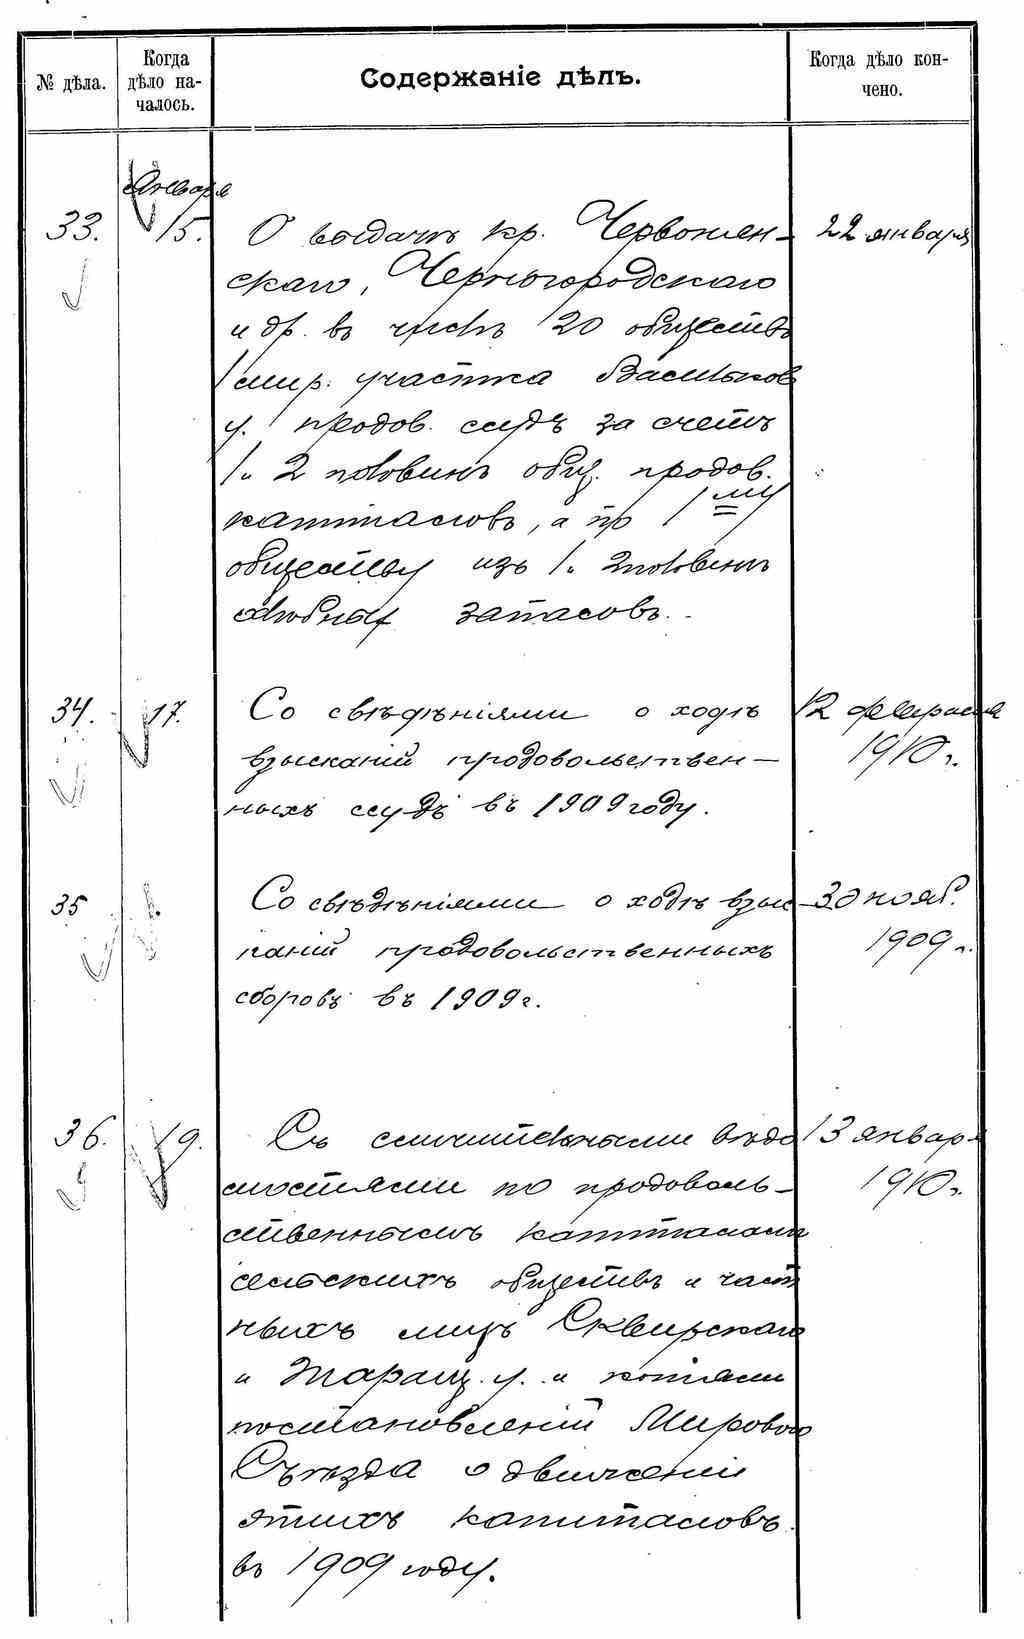 № дѣла.
Когда
дѣло на-
чалось.
Содержаніе дѣлъ.
Когда дѣло кон-
чено.
Января
33.
15.
О выдачѣ кр. Червонен-
скаго, Черногородскаго
и др. въ числѣ 20 обществъ
1 мир. участка Васильков
у. продов. ссудъ за счетъ
1/2 половинъ общ. продов.
капиталовъ, а по 1му
обществу изъ 1/2 половинъ
хлѣбныхъ запасовъ.
22 января
34.
17.
Со свѣдѣніями о ходѣ
взысканій продовольствен-
ныхъ ссудъ въ 1909 году.
12 февраля
1910 г.
35
Со свѣдѣніями о ходѣ взыс-
каній продовольственныхъ
сборовъ въ 1909 г.
30 нояб.
1909 г.
36.
19.
Съ сличительными вѣдо
мостями по продоволь-
ственнымъ капиталамъ
сельскихъ обществъ и част
ныхъ лицъ Сквирскаго
и Таращ. у. и копіями
постановленій Мирового
Съѣзда о движеніи
этихъ капиталовъ
въ 1909 году.
13 января
1910 г.